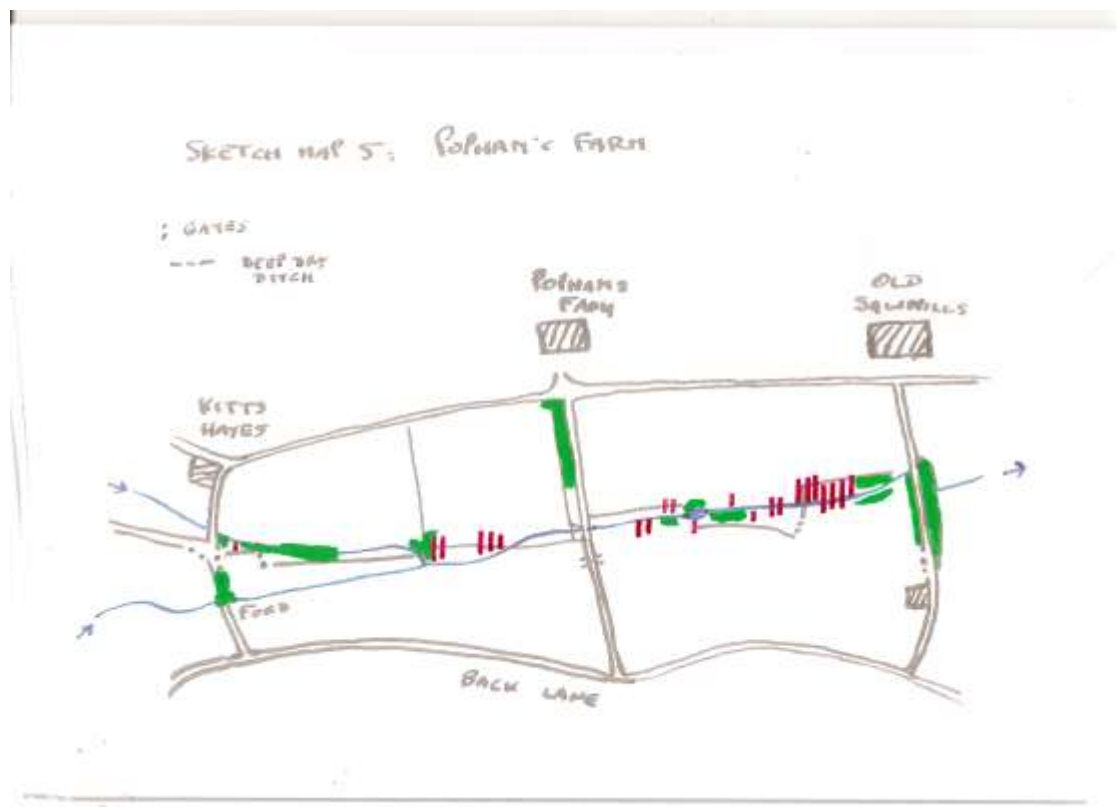 SKETCH MAP 5: POPHAM'S FARM
: GATES
---- DEEP DRY
DITCH
POPHAMS
FARM
OLD
SAWMILLS
KITTS
HAYES
FORD
BACK LANE